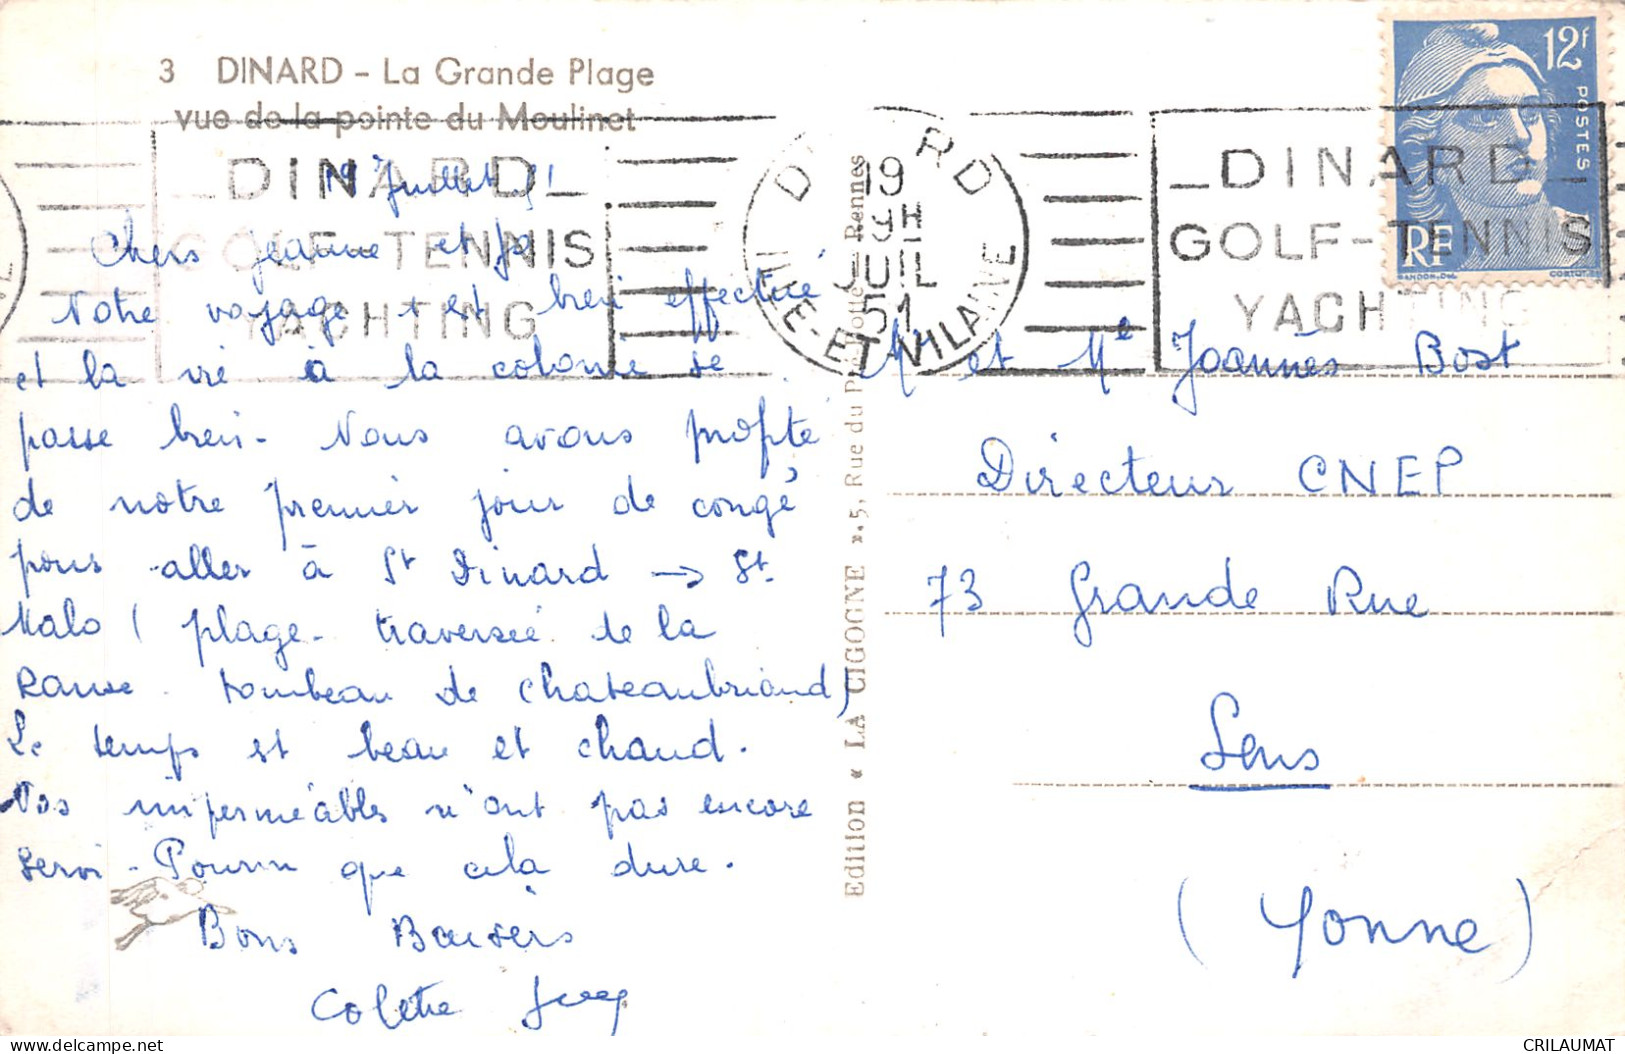 3 DINARD - La Grande Plage
vue de la pointe du Moulinet
19 Juillet 51
Chers Jeanne et
Notre voyage s'est bien effectué
et la vie à la colonie se
passe bien - Nous avons profité
de notre premier jour de congé
pour aller à St Dinard → St.
Malo ( plage - traversée de la
Ranse - tombeau de Chateaubriand)
Le temps est beau et chaud.
Nos imperméables n'ont pas encore
servi - Pourvu que cela dure.
Bons Baisers
Colette
Edition « LA CIGOGNE », 5, Rue du Pré Botté - Rennes
DINARD
19
9H
JUIL
51
ILLE-ET-VILAINE
_DINARD_
GOLF-TENNIS
YACHTING
_DINARD_
GOLF-TENNIS
YACHTING
12f
POSTES
RF
GANDON.DEL
CORTOT.SC
Mr et Me Joannès Bost
Directeur CNEP
73 Grande Rue
Sens
(Yonne)
CRILAUMAT